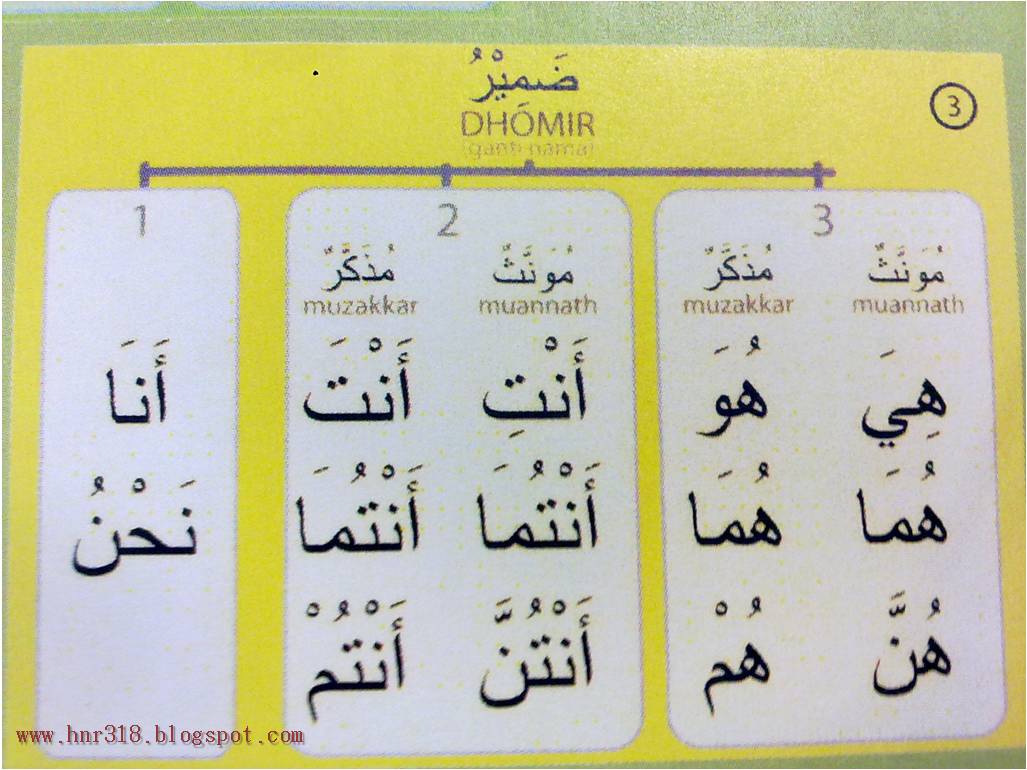 ضَمِيْرُ
DHOMIR
(ganti nama)
3
1 2 3
مُذَكَّرٌ مُوَنَّثٌ مُذَكَّرٌ مُوَنَّثٌ
muzakkar muannath muzakkar muannath
أَنَا أَنْتَ أَنْتِ هُوَ هِيَ
نَحْنُ أَنْتُمَا أَنْتُمَا هُمَا هُمَا
أَنْتُمْ أَنْتُنَّ هُمْ هُنَّ
www.hnr318.blogspot.com